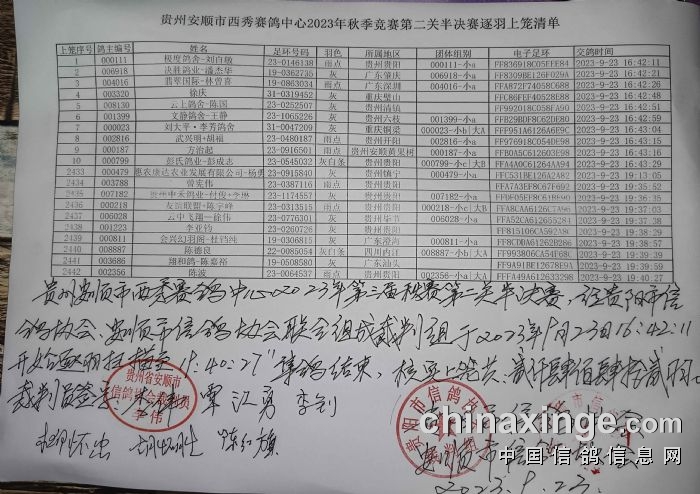 贵州安顺市西秀赛鸽中心2023年秋季竞赛第二关半决赛逐羽上笼清单
上笼序号 鸽主编号 姓名 足环号码 羽色 所属地区 团体组别 电子足环 交鸽时间
1 000111 极度鸽舍-刘自敏 23-0146138 雨点 贵州贵阳 000111-小a FF836918C05EEE84 2023-9-23 16:42:11
2 006918 决胜鸽业-潘杰华 19-0362735 灰 广东肇庆 006918-小a FF8309BE126F02FA 2023-9-23 16:42:21
3 004016 翡翠国际-林曾喜 19-0863034 雨点 广东深圳 004016-小a FFA872F74058C68B 2023-9-23 16:42:26
4 003320 徐庆 31-0319452 灰 重庆璧山 2023-9-23 16:42:48
5 008130 云上鸽舍-陈国 23-0252507 灰 贵州清镇 FF99201BC058FA90 2023-9-23 16:42:51
6 001399 文静鸽舍-王静 23-1065226 灰 贵州六枝 001399-小a 2023-9-23 16:42:59
7 000023 刘大平·李芳鸽舍 31-0047209 灰 重庆铜梁 000023-小b|大A FFF951A6126A6E9C 2023-9-23 16:43:04
8 002816 武兴明+胡福 23-0480187 雨点 贵州开阳 002816-小a FF976918C054DE98 2023-9-23 16:43:15
9 000187 方治起 23-0916501 雨点 贵州安顺黄果树 000187-小a FFB0A55C612603E98 2023-9-23 16:43:21
10 000799 彭氏鸽业-彭成志 23-0545032 灰白条 贵州贵阳 000799-小c|大A FFA4A0C6126A4A94 2023-9-23 16:43:29
2433 000479 惠农康达农业发展有限公司-杨勇 23-0193605 灰 贵州镇宁 000479-小a FFC531BE126A2A82 2023-9-23 19:35:13
2434 003788 曾宪伟 23-0387116 雨点 贵州贵阳 FFA7A3EF8C67F692 2023-9-23
2435 007182 23-1154775 雨点 贵州贵阳 007182-小a 2023-9-23
2436 000218 友谊联盟-陈宇峰 23-0313515 雨点 贵州贵阳 000218-小c|大B FFA8CAA6126C7A96 2023-9-23
2437 006028 云中飞翔一徐伟 23-0776301 灰 贵州毕节 006028-小a 2023-9-23
2438 001223 李亚钧 23-0760297 灰 贵州贵阳 2023-9-23
2439 000811 会兴幻羽阁-杜钧纯 19-0306815 灰 广东澄海 000811-小a FF8CDDA6126B2B86 2023-9-23 19:38:59
2440 008887 陈德良 22-0085054 灰白条 四川内江 008887-小b|大A FF993806CA54F68C 2023-9-23 19:39:35
2441 003686 翔和鸽舍-陈嘉裕 19-0508580 灰 广东汕头 FF9A91BE12678E9A 2023-9-23 19:39:51
2442 002356 陈波 23-0064537 雨点 贵州贵阳 002356-小a|大A FFA49A612633298 2023-9-23 19:40:27
贵州安顺市西秀赛鸽中心2023年第三届秋赛第二关半决赛，经贵阳市信
鸽协会、安顺市信鸽协会联合组成裁判组于2023年9月23日16:42:11
开始逐羽扫描至19:40:27″集鸽结束，核实上笼共：贰仟肆佰肆拾贰羽。
裁判员签字：
贵州省安顺市
信鸽协会裁判员
李伟
江勇 李钊
陈红旗
贵阳市信鸽协会
安顺市信鸽协会
2023.9.23.
chinaxinge.com
中国信鸽信息网